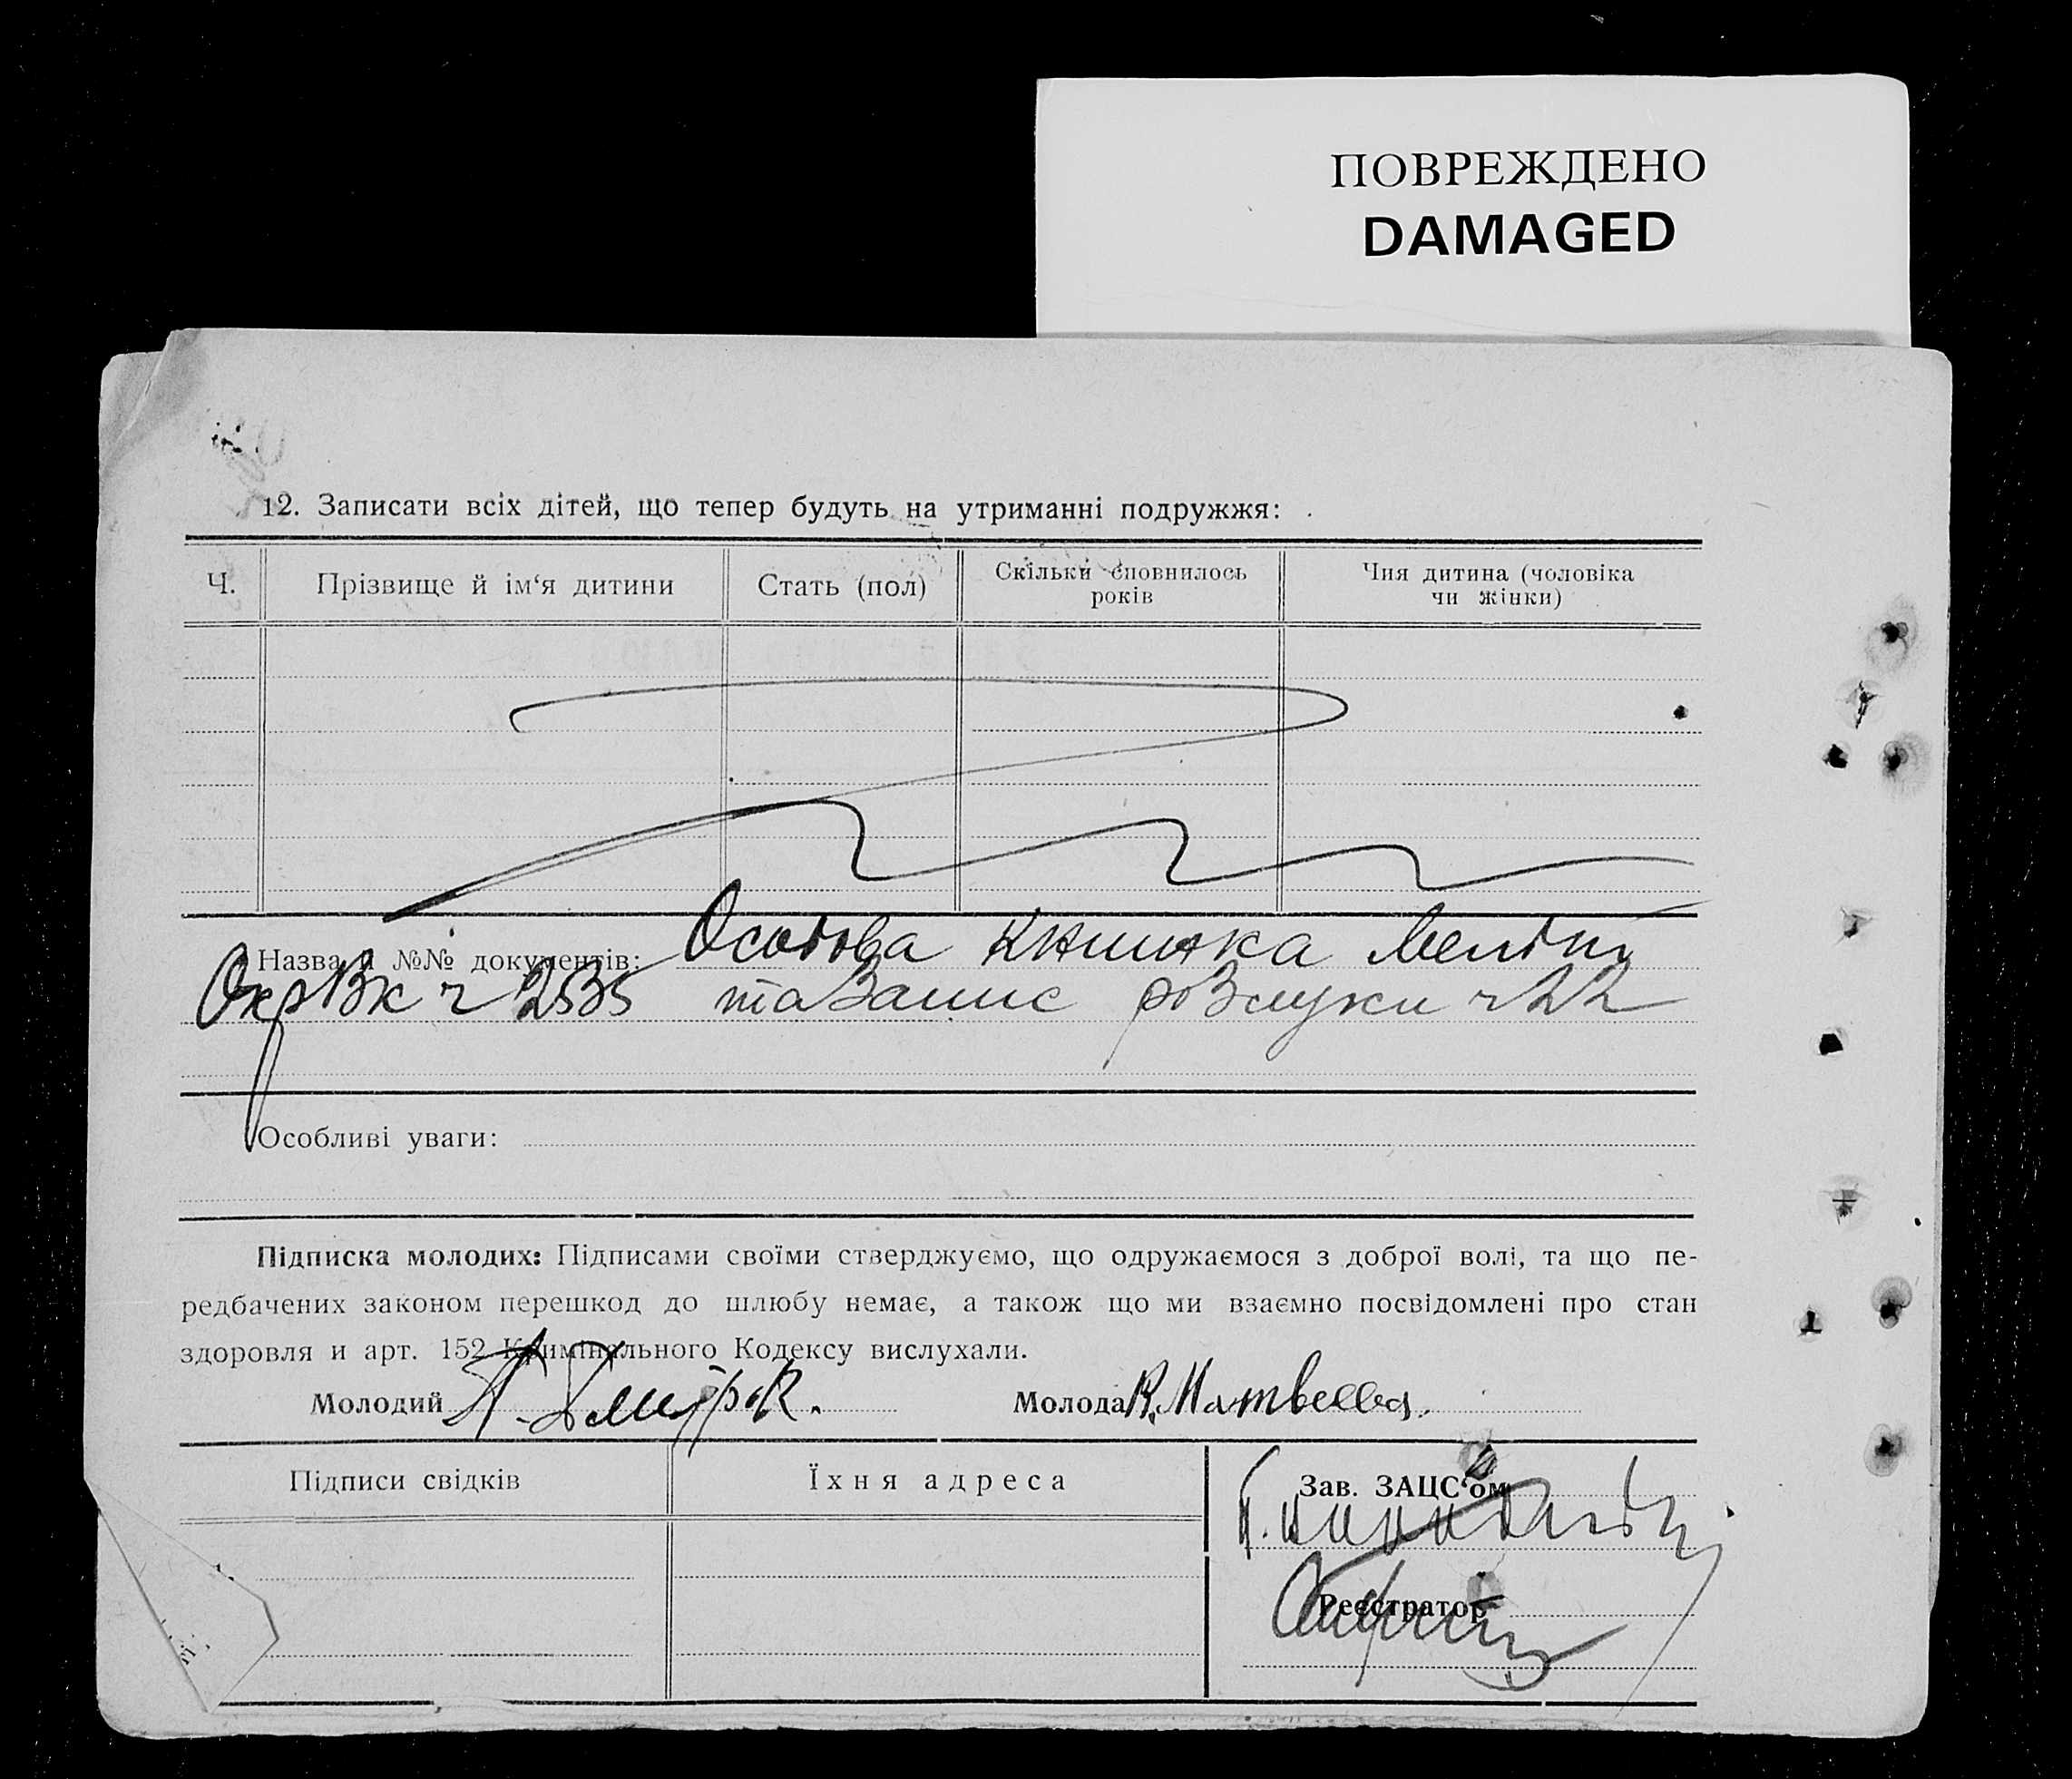 ПОВРЕЖДЕНО
DAMAGED
12. Записати всіх дітей, що тепер будуть на утриманні подружжя:
Ч. Прізвище й ім‘я дитини Стать (пол) Скільки сповнилось років Чия дитина (чоловіка чи жінки)
Назва й №№ документів: Особова книжка
ОкрВк ч 2535 та Запис розлуки ч 22
Особливі уваги:
Підписка молодих: Підписами своїми стверджуємо, що одружаємося з доброї волі, та що пе-
редбачених законом перешкод до шлюбу немає, а також що ми взаємно посвідомлені про стан
здоровля и арт. 152 Кримінального Кодексу вислухали.
Молодий Молода К. Матвеева.
Підписи свідків Їхня адреса Зав. ЗАЦС‘ом
Реєстратор